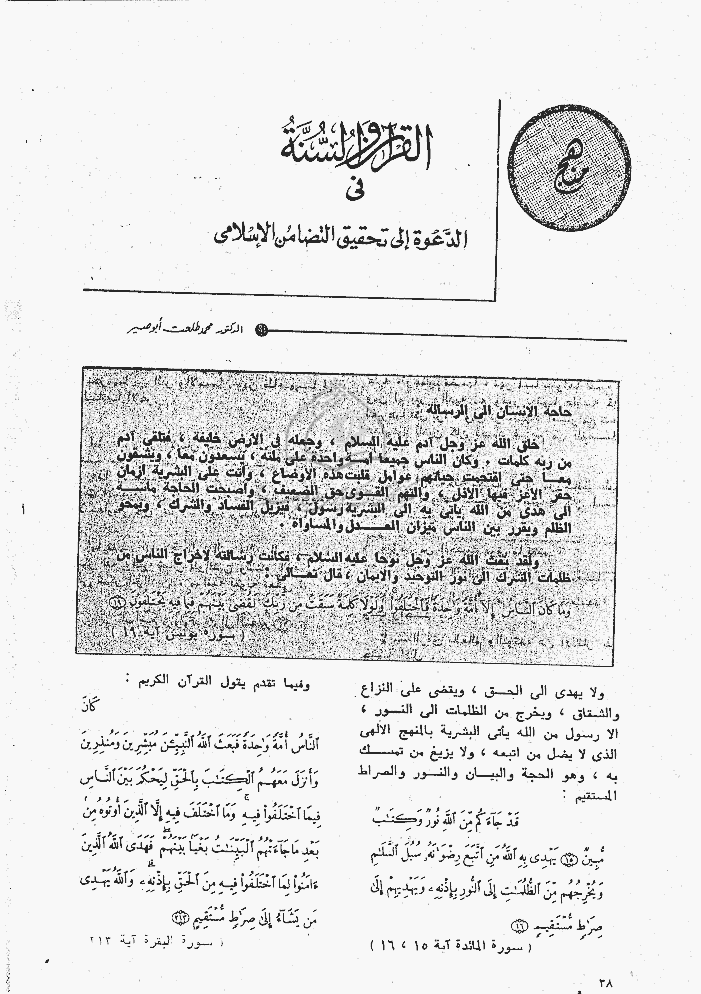 منهج
القرآن والسُّنَّة
فى
الدَّعوة إلى تحقيق التضامن الإسلامى
الدكتور محمد طلعت أبو صير
حاجة الإنسان الى الرسالة
خلق الله عز وجل آدم عليه السلام ، وجعله فى الأرض خليفة ، فتلقى آدم
من ربه كلمات ، وكان الناس جميعا أمة واحدة على ملته ، يسعدون معا ، ويشقون
معا حتى اقتحمت حياتهم عوامل قلبت هذه الأوضاع ، وأتت على البشرية أزمان
حقر الأعز فيها الأذل ، والتهم القوى حق الضعيف ، وأصبحت الحاجة ماسة
الى هدى من الله يأتى به الى البشرية رسول ، فيزيل الفساد والشرك ، ويمحو
الظلم ويقرر بين الناس ميزان العدل والمساواة .
ولقد بعث الله عز وجل نوحا عليه السلام ، فكانت رسالته لإخراج الناس من
ظلمات الشرك الى نور التوحيد والايمان ، قال تعالى :
وَمَا كَانَ النَّاسُ إِلَّا أُمَّةً وَاحِدَةً فَاخْتَلَفُوا وَلَوْلَا كَلِمَةٌ سَبَقَتْ مِن رَّبِّكَ لَقُضِىَ بَيْنَهُمْ فِيمَا فِيهِ يَخْتَلِفُونَ ﴿١٩﴾
( سورة يونس آية ١٦ )
ولا يهدى الى الحــق ، ويقضى على النزاع
والشقاق ، ويخرج من الظلمات الى النــور ،
الا رسول من الله يأتى البشرية بالمنهج الالهى
الذى لا يضل من اتبعه ، ولا يزيغ من تمســك
به ، وهو الحجة والبيــان والنــور والصراط
المستقيم :
قَدْ جَاءَكُم مِّنَ اللَّهِ نُورٌ وَكِتَابٌ
مُّبِينٌ ﴿١٥﴾ يَهْدِى بِهِ اللَّهُ مَنِ اتَّبَعَ رِضْوَانَهُ سُبُلَ السَّلَامِ
وَيُخْرِجُهُم مِّنَ الظُّلُمَاتِ إِلَى النُّورِ بِإِذْنِهِ وَيَهْدِيهِمْ إِلَى
صِرَاطٍ مُّسْتَقِيمٍ ﴿١٦﴾
( سورة المائدة آية ١٥ ، ١٦ )
وفيما تقدم يقول القرآن الكريم :
كَانَ
النَّاسُ أُمَّةً وَاحِدَةً فَبَعَثَ اللَّهُ النَّبِيِّينَ مُبَشِّرِينَ وَمُنذِرِينَ
وَأَنزَلَ مَعَهُمُ الْكِتَابَ بِالْحَقِّ لِيَحْكُمَ بَيْنَ النَّاسِ
فِيمَا اخْتَلَفُوا فِيهِ ۚ وَمَا اخْتَلَفَ فِيهِ إِلَّا الَّذِينَ أُوتُوهُ مِن
بَعْدِ مَا جَاءَتْهُمُ الْبَيِّنَاتُ بَغْيًا بَيْنَهُمْ ۖ فَهَدَى اللَّهُ الَّذِينَ
ءَامَنُوا لِمَا اخْتَلَفُوا فِيهِ مِنَ الْحَقِّ بِإِذْنِهِ ۗ وَاللَّهُ يَهْدِى
مَن يَشَاءُ إِلَى صِرَاطٍ مُّسْتَقِيمٍ ﴿٢١٣﴾
( سورة البقرة آية ٢١٣ )
٣٨